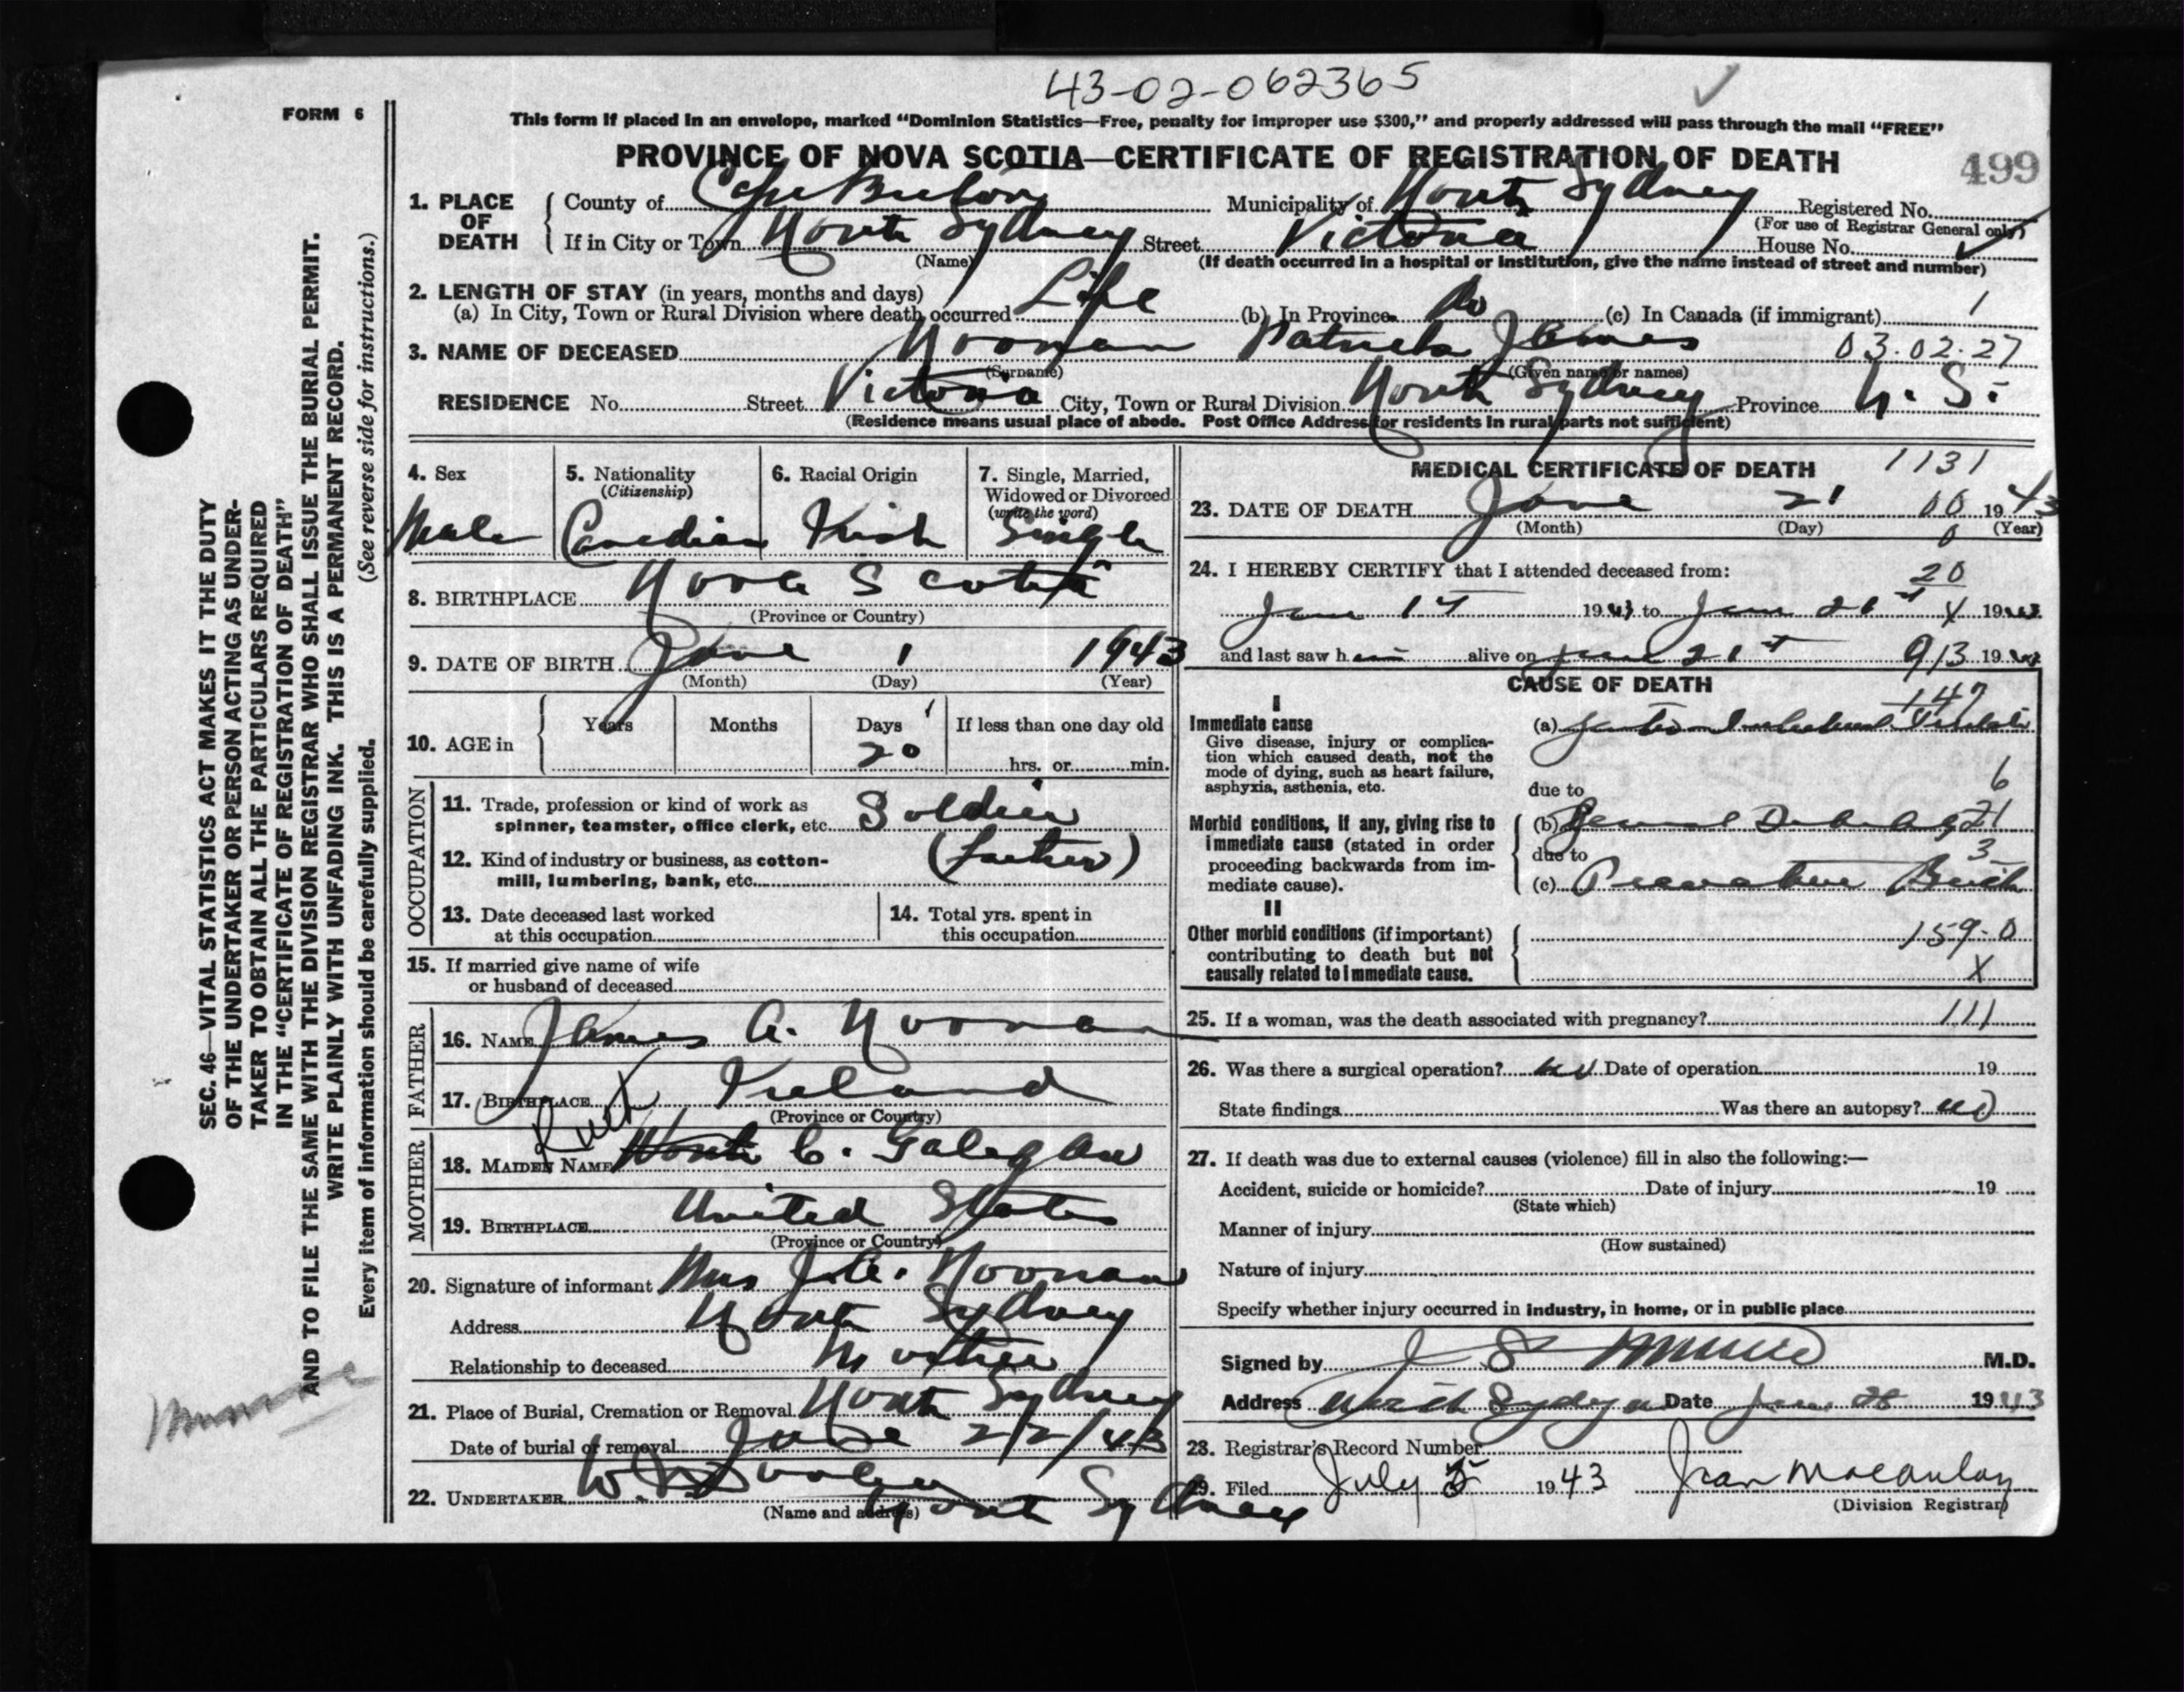 43-02-062365
FORM 6
This form if placed in an envelope, marked “Dominion Statistics—Free, penalty for improper use $300,” and properly addressed will pass through the mail “FREE”
PROVINCE OF NOVA SCOTIA—CERTIFICATE OF REGISTRATION OF DEATH
499
1. PLACE OF DEATH
County of Cape Breton Municipality of North Sydney Registered No.
(For use of Registrar General only)
If in City or Town North Sydney Street Victoria House No.
(Name) (If death occurred in a hospital or institution, give the name instead of street and number)
2. LENGTH OF STAY (in years, months and days)
(a) In City, Town or Rural Division where death occurred Life (b) In Province Do (c) In Canada (if immigrant) 1
3. NAME OF DECEASED Noonan Patrick James 03.02.27
(Surname) (Given name or names)
RESIDENCE No. Street Victoria City, Town or Rural Division North Sydney Province N. S.
(Residence means usual place of abode. Post Office Address for residents in rural parts not sufficient)
4. Sex
Male
5. Nationality
(Citizenship)
Canadian
6. Racial Origin
Irish
7. Single, Married,
Widowed or Divorced
(write the word)
Single
8. BIRTHPLACE Nova Scotia
(Province or Country)
9. DATE OF BIRTH June 1 1943
(Month) (Day) (Year)
10. AGE in
Years Months Days If less than one day old
20 hrs. or min.
OCCUPATION
11. Trade, profession or kind of work as
spinner, teamster, office clerk, etc. Soldier
12. Kind of industry or business, as cotton-
mill, lumbering, bank, etc. (father)
13. Date deceased last worked
at this occupation
14. Total yrs. spent in
this occupation
15. If married give name of wife
or husband of deceased
FATHER
16. NAME James A. Noonan
17. BIRTHPLACE Ireland
(Province or Country)
MOTHER
18. MAIDEN NAME C.
19. BIRTHPLACE United States
(Province or Country)
20. Signature of informant Mrs J. A. Noonan
Address North Sydney
Relationship to deceased Mother
21. Place of Burial, Cremation or Removal North Sydney
Date of burial or removal June 22/43
22. UNDERTAKER W. North Sydney
(Name and address)
MEDICAL CERTIFICATE OF DEATH 1131
23. DATE OF DEATH June 21 00 1943
(Month) (Day) (Year)
0
24. I HEREBY CERTIFY that I attended deceased from:
20
June 1st 1943 to June 21st X 1943
and last saw him alive on June 21st 913 1943
CAUSE OF DEATH
147
I
Immediate cause
Give disease, injury or complica-
tion which caused death, not the
mode of dying, such as heart failure,
asphyxia, asthenia, etc.
(a) Gastro Intestinal
6
due to
Morbid conditions, if any, giving rise to
immediate cause (stated in order
proceeding backwards from im-
mediate cause).
(b) General Debility 21
due to 3
(c) Premature Birth
II
Other morbid conditions (if important)
contributing to death but not
causally related to immediate cause.
159-0
X
25. If a woman, was the death associated with pregnancy? 111
26. Was there a surgical operation? no Date of operation 19
State findings Was there an autopsy? no
27. If death was due to external causes (violence) fill in also the following:—
Accident, suicide or homicide? Date of injury 19
(State which)
Manner of injury
(How sustained)
Nature of injury
Specify whether injury occurred in industry, in home, or in public place
Signed by J S M.D.
Address North Sydney Date June 1943
28. Registrar's Record Number
29. Filed July 5 1943 Jean Macaulay
(Division Registrar)
SEC. 46—VITAL STATISTICS ACT MAKES IT THE DUTY
OF THE UNDERTAKER OR PERSON ACTING AS UNDER-
TAKER TO OBTAIN ALL THE PARTICULARS REQUIRED
IN THE “CERTIFICATE OF REGISTRATION OF DEATH”
AND TO FILE THE SAME WITH THE DIVISION REGISTRAR WHO SHALL ISSUE THE BURIAL PERMIT.
WRITE PLAINLY WITH UNFADING INK. THIS IS A PERMANENT RECORD.
Every item of information should be carefully supplied. (See reverse side for instructions.)